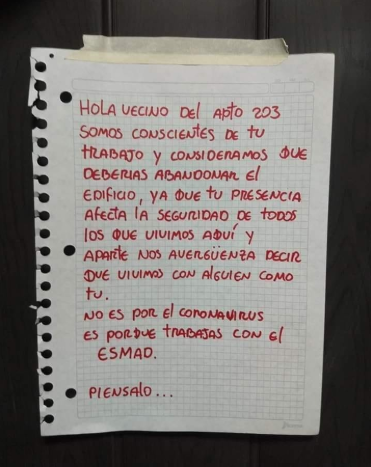 HOLA VECINO DEL APTO 203
SOMOS CONSCIENTES DE TU
TRABAJO Y CONSIDERAMOS QUE
DEBERIAS ABANDONAR El
EDIFICIO, YA QUE TU PRESENCIA
AFECTA lA SEGURIDAD DE TODOS
lOS QUE VIVIMOS AQUÍ Y
APARTE NOS AVERGÜENZA DECIR
QUE VIVIMOS CON AlGUIEN COMO
TU.
NO ES POR El CORONAVIRUS
ES PORQUE TRABAJAS CON El
ESMAD.
PIENSALO...